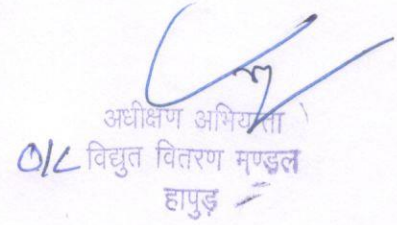 अधीक्षण अभियन्ता
O/C विद्युत वितरण मण्डल
हापुड़